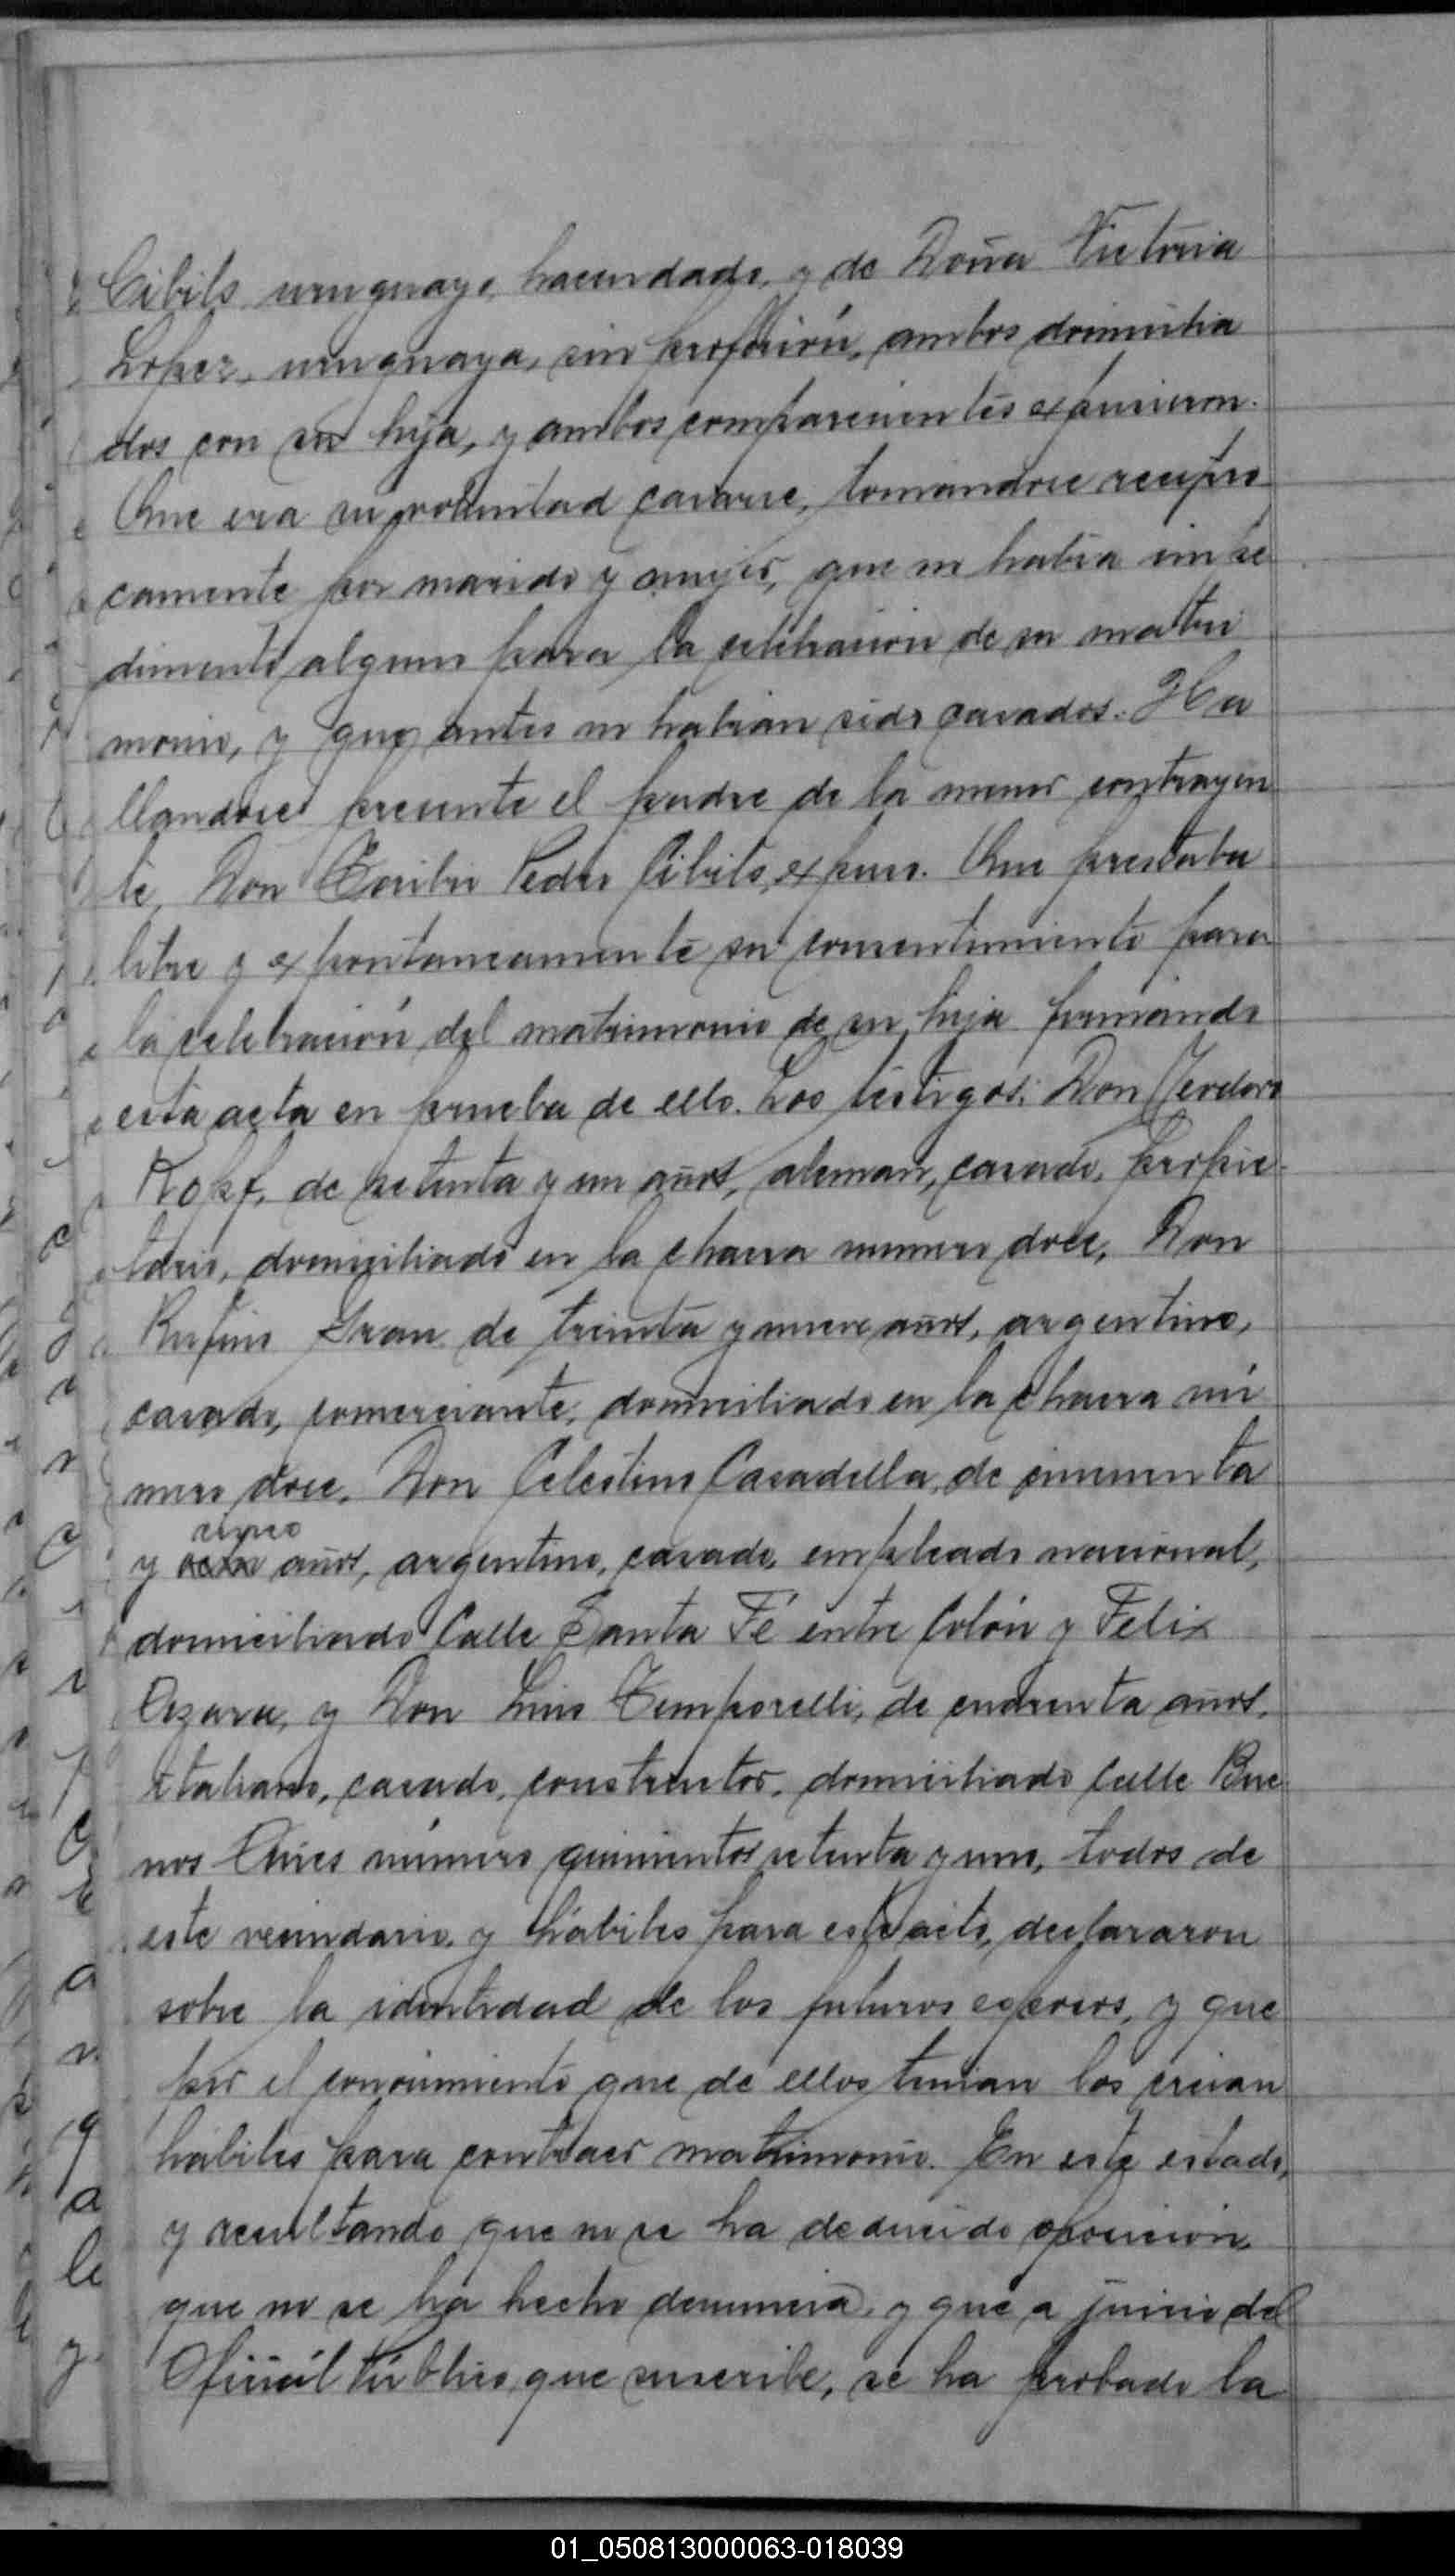 Cibils uruguayo, hacendado, y de Doña Victoria
Lopez, uruguaya, sin profesión, ambos domicilia
dos con su hija, y ambos comparecientes expusieron.
Que era su voluntad casarse, tomandose recipro
camente por marido y mujer, que no habia impe
dimento alguno para la celebracion de su matri
monio, y que antes no habian sido casados. Ha
llandose presente el padre de la menor contrayen
te, Don Toribio Pedro Cibils, expuso. Que prestaba
libre y expontaneamente su consentimiento para
la celebración del matrimonio de su hija firmando
esta acta en prueba de ello. Los testigos: Don Teodoro
Kopf, de setenta y un años, aleman, casado, propie
tario, domiciliado en la chacra numero doce, Don
Rufino Gran de treinta y nueve años, argentino,
casado, comerciante, domiciliado en la chacra nú
mero doce, Don Celestino Casadella, de cincuenta
cinco
y años, argentino, casado, empleado nacional,
domiciliado Calle Santa Fé entre Colón y Felix
Azara, y Don Luis Temporelli, de cuarenta años,
italiano, casado, constructor, domiciliado calle Bue
nos Aires número quinientos setenta y uno, todos de
este vecindario y hábiles para este acto, declararon
sobre la identidad de los futuros esposos, y que
por el conocimiento que de ellos tenian los creian
hábiles para contraer matrimonio. En este estado,
y resultando que no se ha deducido oposicion,
que no se ha hecho denuncia, y que a juicio del
Oficial Público que suscribe, se ha probado la
01_050813000063-018039